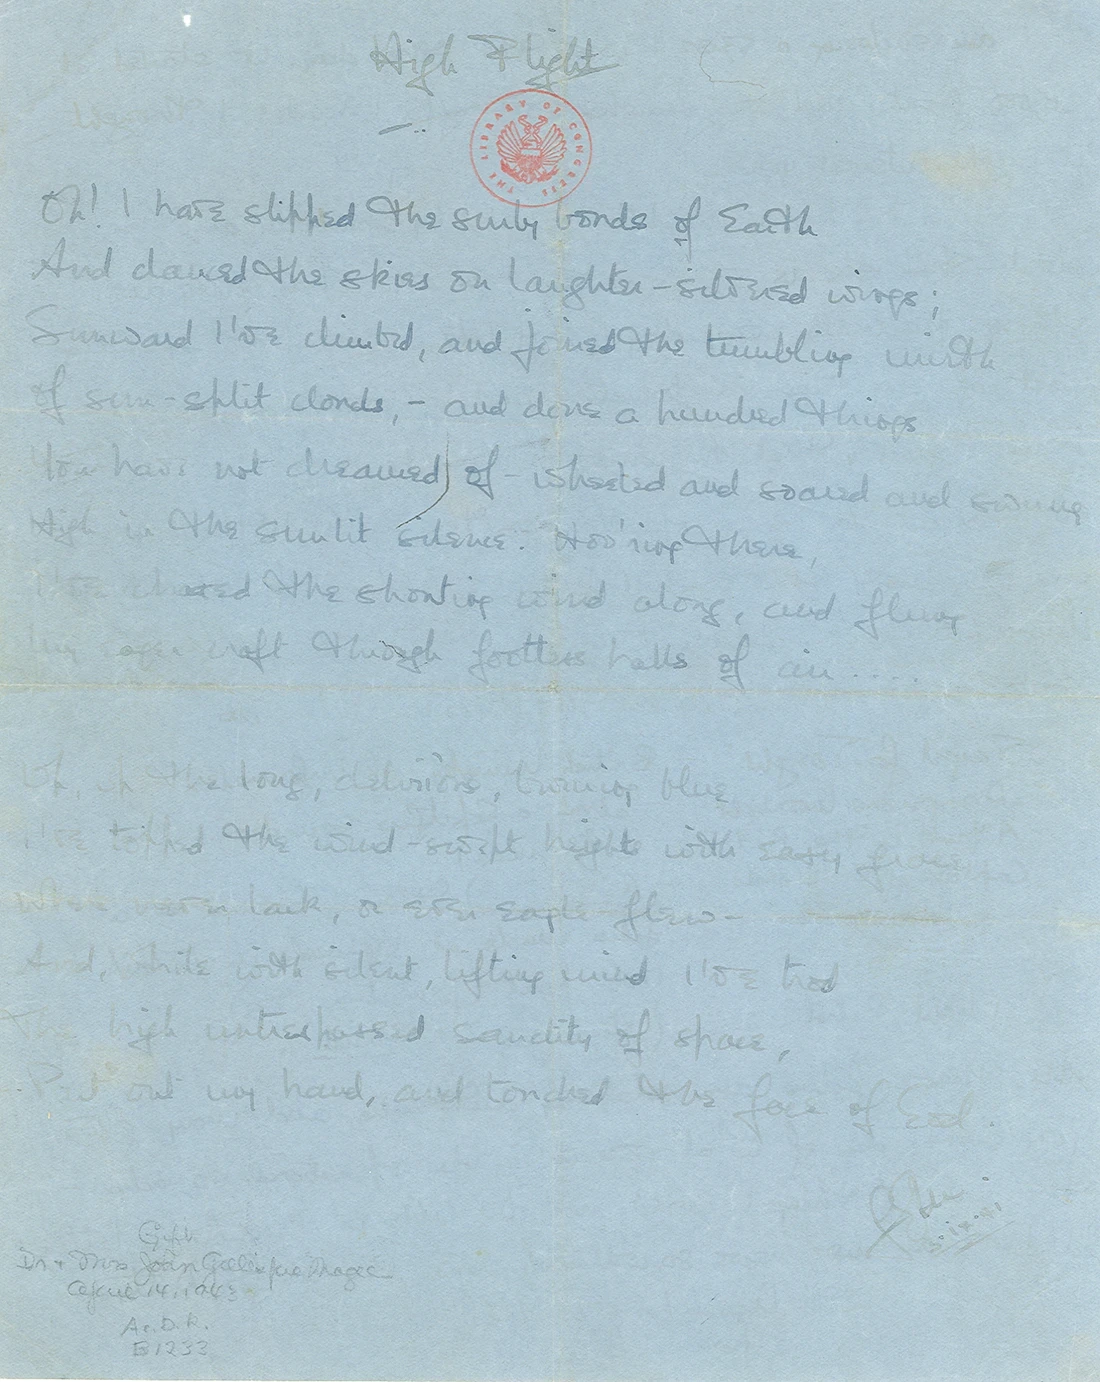 High Flight
THE LIBRARY OF CONGRESS
Oh! I have slipped the surly bonds of Earth
And danced the skies on laughter-silvered wings;
Sunward I've climbed, and joined the tumbling mirth
Of sun-split clouds, - and done a hundred things
You have not dreamed of - wheeled and soared and swung
High in the sunlit silence. Hov'ring there,
I've chased the shouting wind along, and flung
My eager craft through footless halls of air ....
Oh, up the long, delirious, burning blue
I've topped the wind-swept heights with easy grace
Where never lark, or ever eagle flew -
And, while with silent, lifting mind I've trod
The high untrespassed sanctity of space,
Put out my hand, and touched the face of God.
3·IX·41
Gift
Dr. + Mrs John Gillespie Magee
April 14, 1943
Ac. D.R.